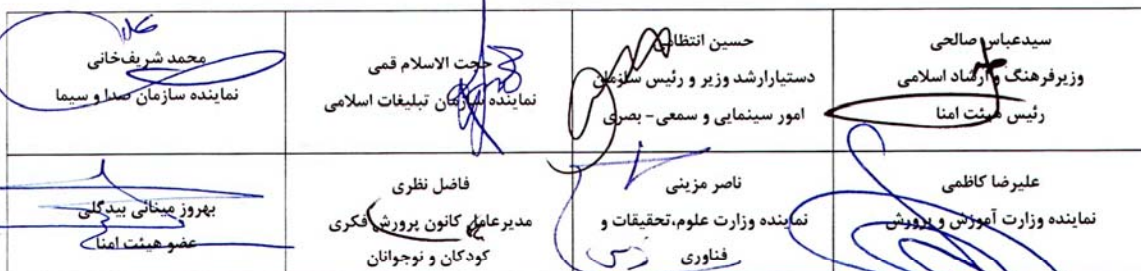 سیدعباس صالحی
وزیرفرهنگ و ارشاد اسلامی
رئیس هیئت امنا
حسین انتظامی
دستیارارشد وزیر و رئیس سازمان
امور سینمایی و سمعی - بصری
حجت الاسلام قمی
نماینده سازمان تبلیغات اسلامی
محمد شریف‌خانی
نماینده سازمان صدا و سیما
علیرضا کاظمی
نماینده وزارت آموزش و پرورش
ناصر مزینی
نماینده وزارت علوم،تحقیقات و
فناوری
فاضل نظری
مدیرعامل کانون پرورش فکری
کودکان و نوجوانان
بهروز مینائی بیدگلی
عضو هیئت امنا